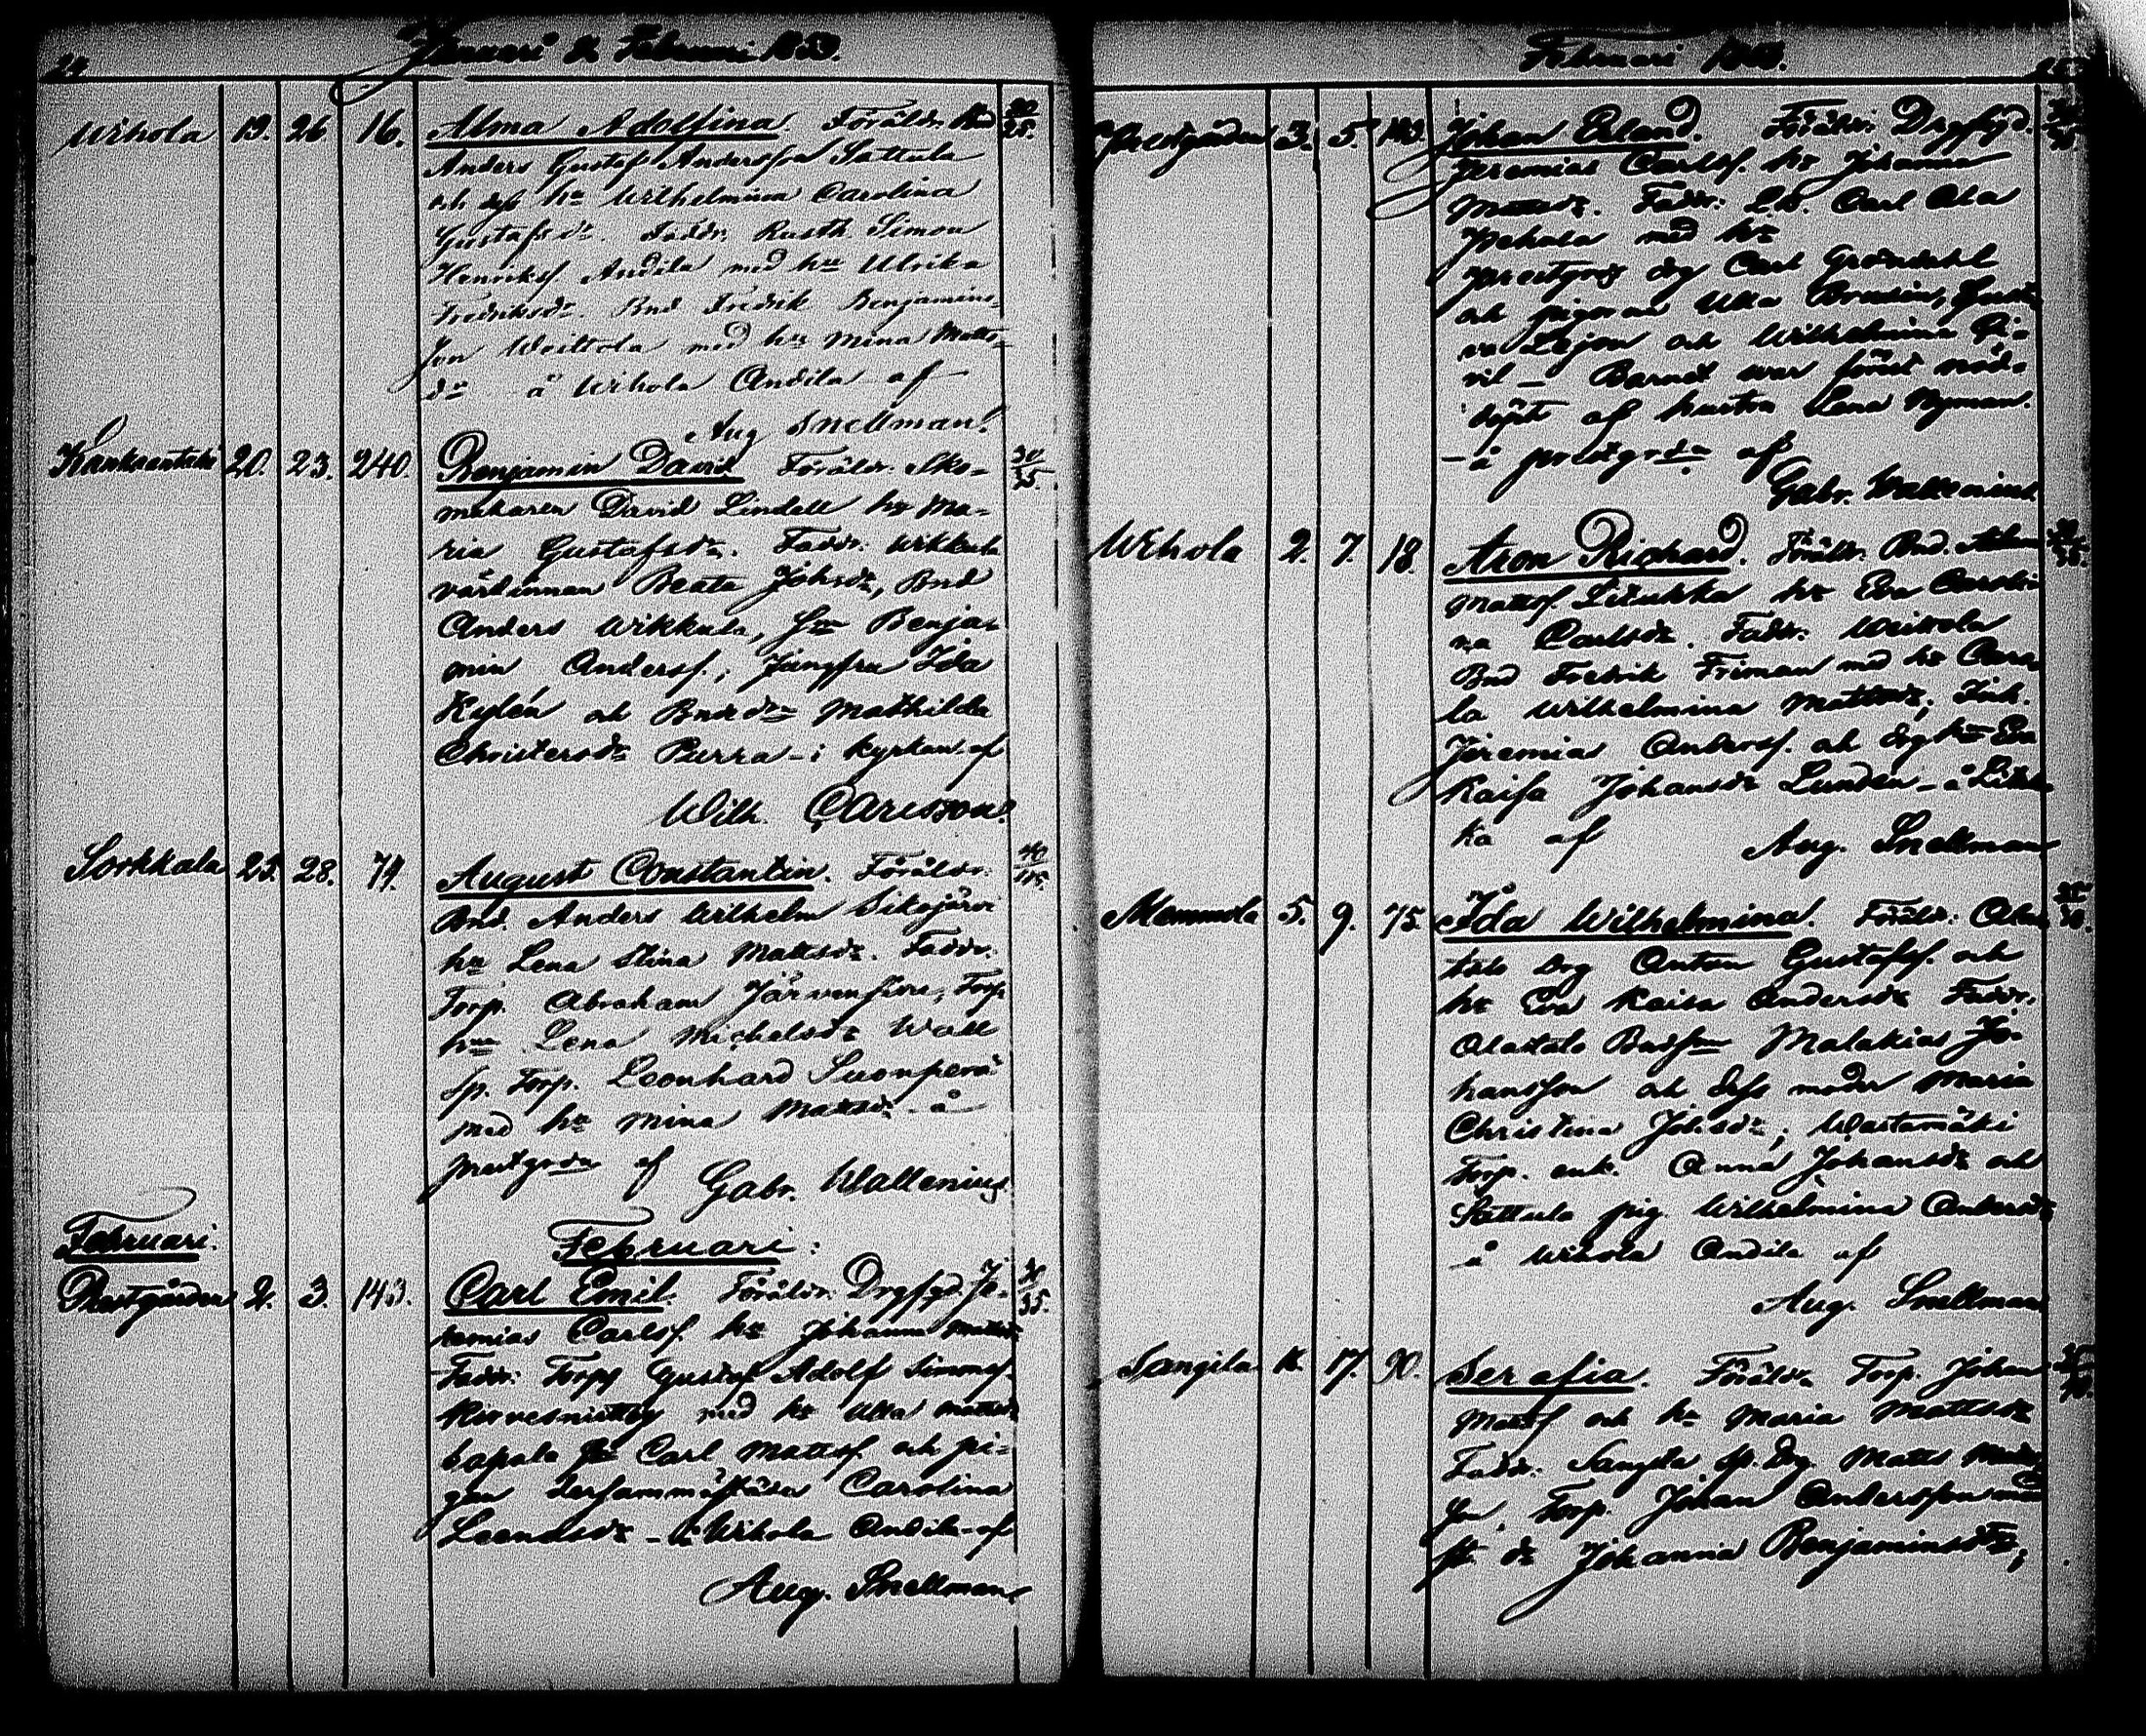 24
Januari & Februari 18
Wihola 19. 26 16. Alma Adolfina. Föräldr. Bnd 30/25.
Anders Gustaf Andersson Sattula
och dess hu Wilhelmina Carolina
Gustafsdr. Faddr. Rusth. Simon
Henrikss. Andila med hu Ulrika
Fredriksdr. Bnd Fredrik Benjamins-
son Weittola med hu Mina Matts-
dr å Wihola Andila af
Aug Snellman.
20. 23. 240. Benjamin David Föräldr. Sko- 30/25.
makaren David Lindell hu Ma-
ria Gustafsdr. Faddr. Wikkula
värdinnan Beata Johsdr, Bnd
Anders Wikkula, sn Benja-
min Anderss.; Jungfru Ida
Kylén och Bnddr Mathilda
Christersdr Purra - i kyrkan af
Wilh. Carlsson.
Sorkkala 25. 28. 79. August Constantin. Föräldr.
Bnd. Anders Wilhelm Sikojärvi
hu Lena Stina Mattsdr. Faddr.
Torp. Abraham Torp
hu Lena Michelsdr Wall
sp. Torp. Leonhard Suonperä
med hu Mina Mattsdr - å
prestgrdn af Gabr. Wallenius.
Februari. Februari.
Prestgården 2. 3. 143. Carl Emil. Föräldr. Drgfgd. Je- 30/35.
remias Carlss. hu Johanna Mattsdr
Faddr: Torpp Gustaf Adolf Simonss.
med hu Ulla Mattsdr
sn Carl Mattss. och pi-
gan dersammastädes Carolina
Leandsdr - å Wihola Andila - af
Aug. Snellman.
Februari 18
25
Prestgården 3. 5. 143. Johan Erland. Föräldr. Drgfgd.
Jeremias Carlss. hu Johanna
Mattsdr. Faddr: Carl
med hu
prestgrds drg Carl Gröndahl
och pigorna Ulla
Lejon och Wilhelmina
- Barnet war förut nöd-
döpt af hustru Lena Nyman.
- å prestgrdn af
Gabr. Wallenius.
Wihola 2. 7. 18. Aron Richard. Föräldr. Bnd.
Mattss. hu Eva Caroli-
na Carlsdr. Faddr. Weittola
Bnd Fredrik Friman med hu Caro-
la Wilhelmina Mattsdr;
Jeremias Anderss. och drg hu Eva
Kaisa Johansdr Lunden - å
ka af Aug. Snellman
5. 9. 75. Ida Wilhelmina. Föräldr: Ala-
talo Drg Anton Gustafss. och
hu Eva Kaisa Andersdr Faddr.
Alatalo Bndsn Malakias Jo-
hansson och dess moder Maria
Christina Johsdr; Wastamäki
Torp. enk. Anna Johansdr och
Sattula pig. Wilhelmina Andersdr
å Wihola Andila af
Aug. Snellman
Sangila 17. 90. Serafia. Föräldr. Torp. Johan
Mattss och hu Maria Mattsdr
Faddr: Sangila sp. Drg. Matts
son, Torp. Johan Andersson med
dr Johanna Benjaminsdr;